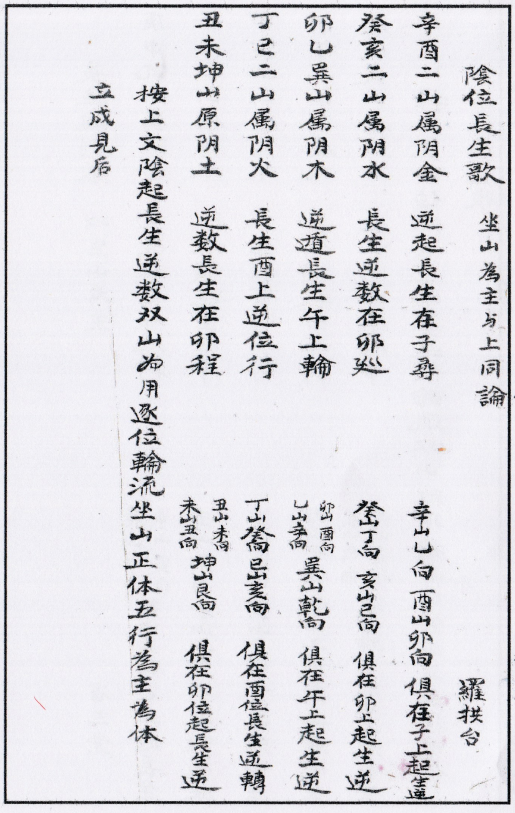 陰位長生歌 坐山為主与上同論 羅拱台
辛酉二山属阴金 逆起長生在子尋 辛山乙向 酉山卯向 俱在子上起生逆
癸亥二山属阴水 長生逆数在卯廵 癸山丁向 亥山巳向 俱在卯上起生逆
卯乙巽山属阴木 逆遁長生午上輪 卯山酉向 乙山辛向 巽山乾向 俱在午上起生逆
丁巳二山属阴火 長生酉上逆位行 丁山癸向 巳山亥向 俱在酉位長生逆轉
丑未坤山原阴土 逆数長生在卯程 丑山未向 未山丑向 坤山艮向 俱在卯位起長生逆
按上文陰起長生逆数双山为用逐位輪流坐山正体五行為主為体
立成見后